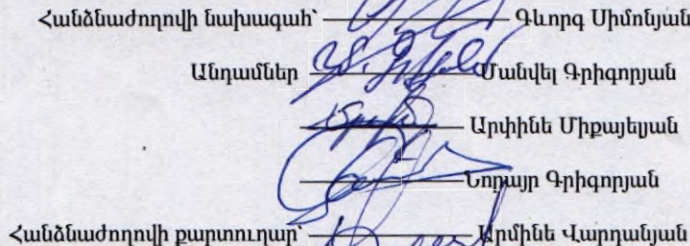 Հանձնաժողովի նախագահ՝ Գևորգ Սիմոնյան
Անդամներ Մանվել Գրիգորյան
Արփինե Միքայելյան
Նորայր Գրիգորյան
Հանձնաժողովի քարտուղար՝ Արմինե Վարդանյան